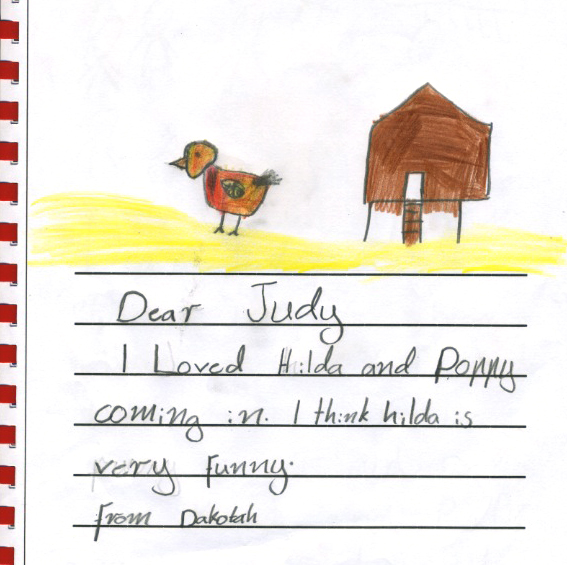 Dear Judy
I Loved Hilda and Poppy
coming in. I think hilda is
very funny.
From Dakotah